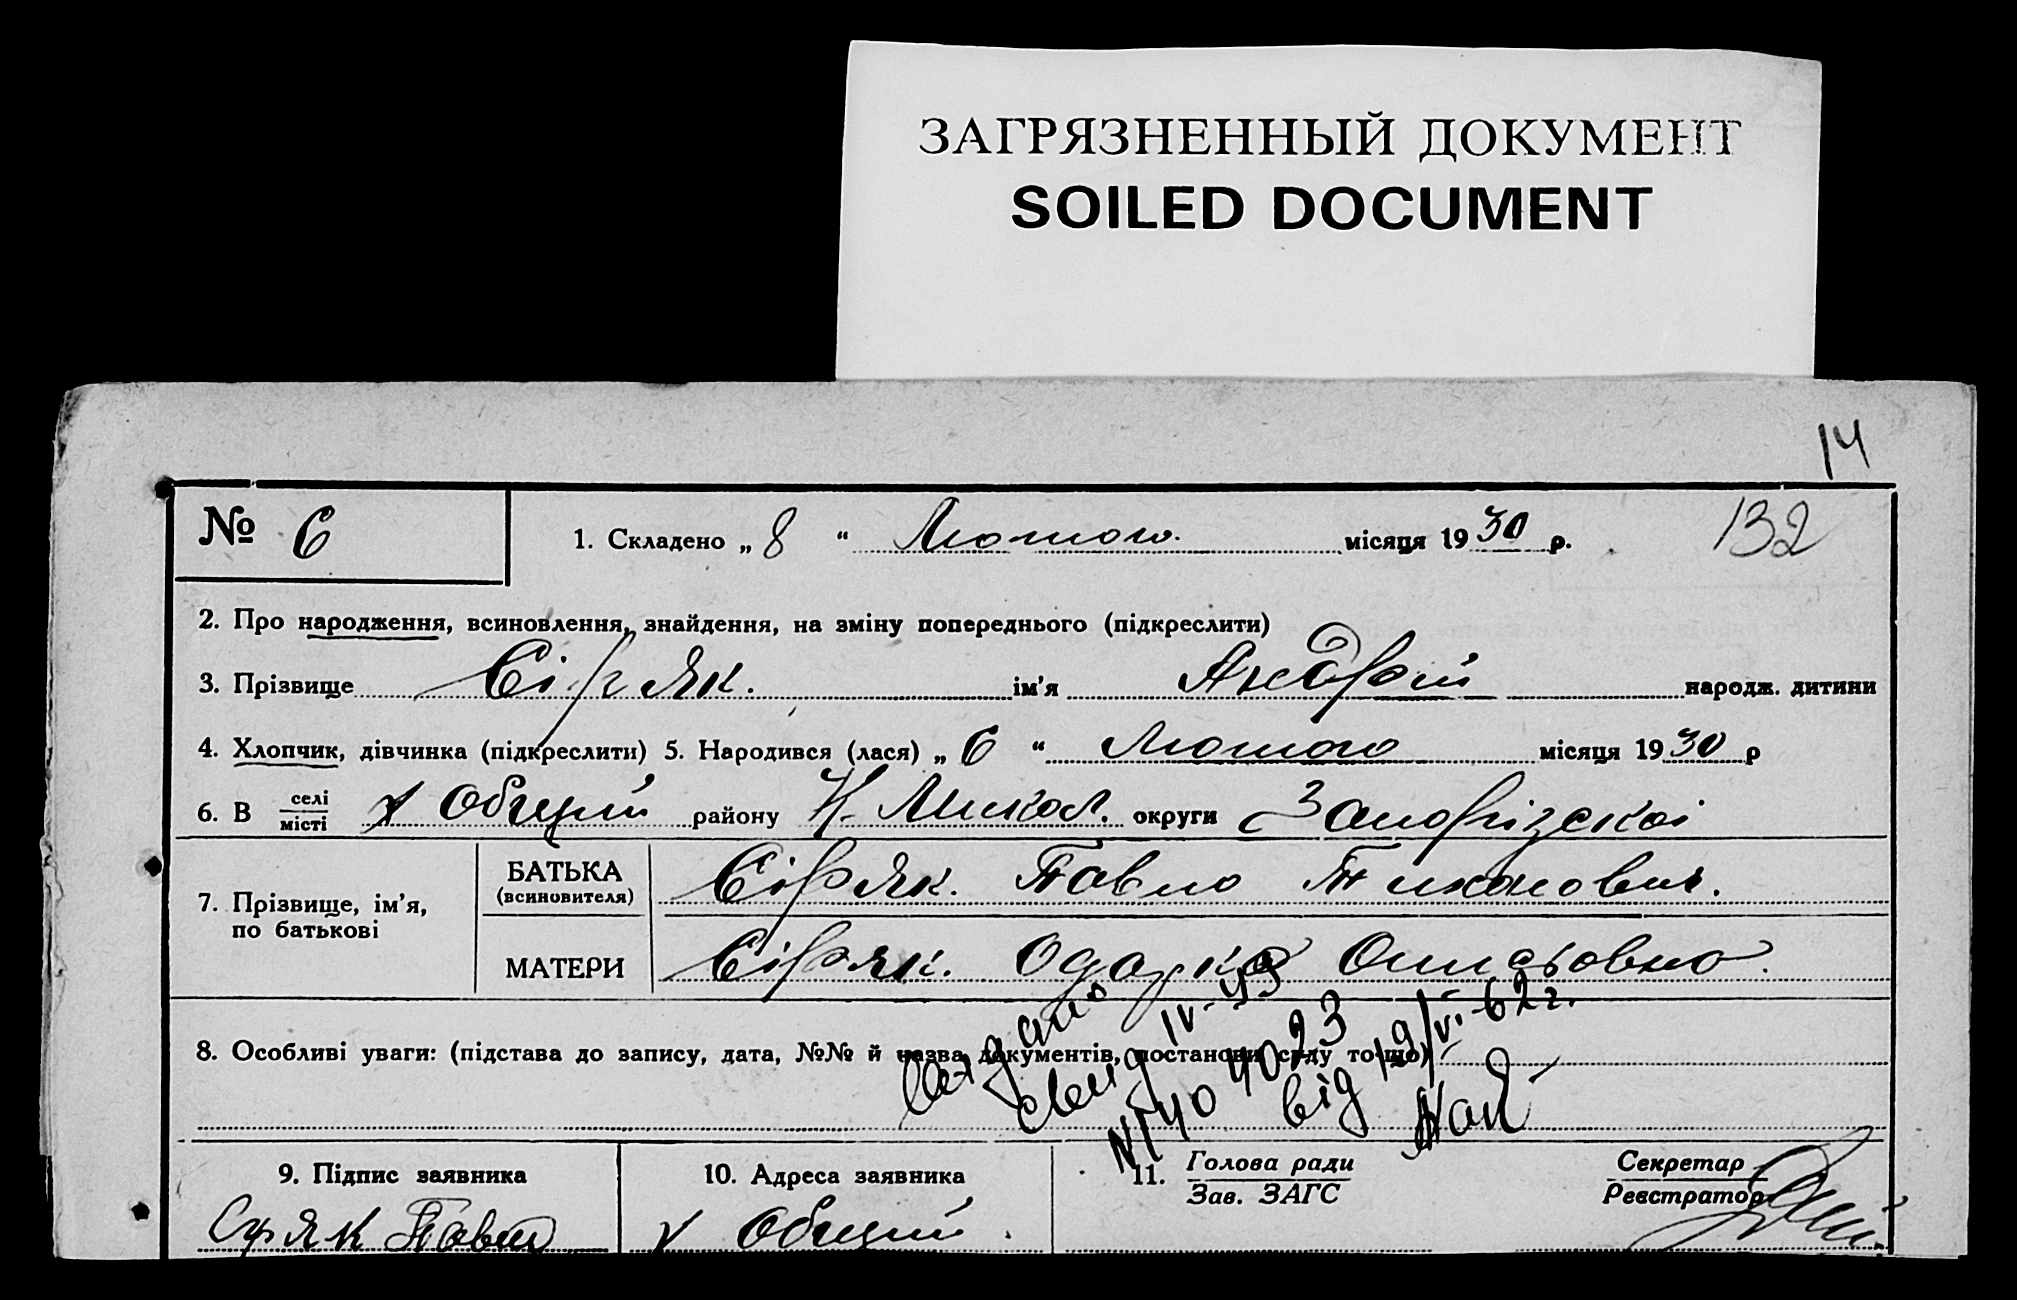 ЗАГРЯЗНЕННЫЙ ДОКУМЕНТ
SOILED DOCUMENT
14
№ 6
1. Складено „ 8 “ Лютого місяця 1930 р.
132
2. Про народження, всиновлення, знайдення, на зміну попереднього (підкреслити)
3. Прізвище Сіряк. ім'я Андрій народж. дитини
4. Хлопчик, дівчинка (підкреслити) 5. Народився (лася) „ 6 “ Лютого місяця 1930 р
6. В селі місті х Общий району Н. Микол. округи Запорізскоі
7. Прізвище, ім'я, по батькові
БАТЬКА (всиновителя) Сіряк. Павло Тихонович.
МАТЕРИ Сіряк. Одарка
8. Особливі уваги: (підстава до запису, дата, №№ й назва документів, постанови суду тощо)
видано
від 19/VI-62 г.
9. Підпис заявника
10. Адреса заявника
11. Голова ради
Зав. ЗАГС
Секретар
Реєстратор
Сіряк Павло
х Общий.